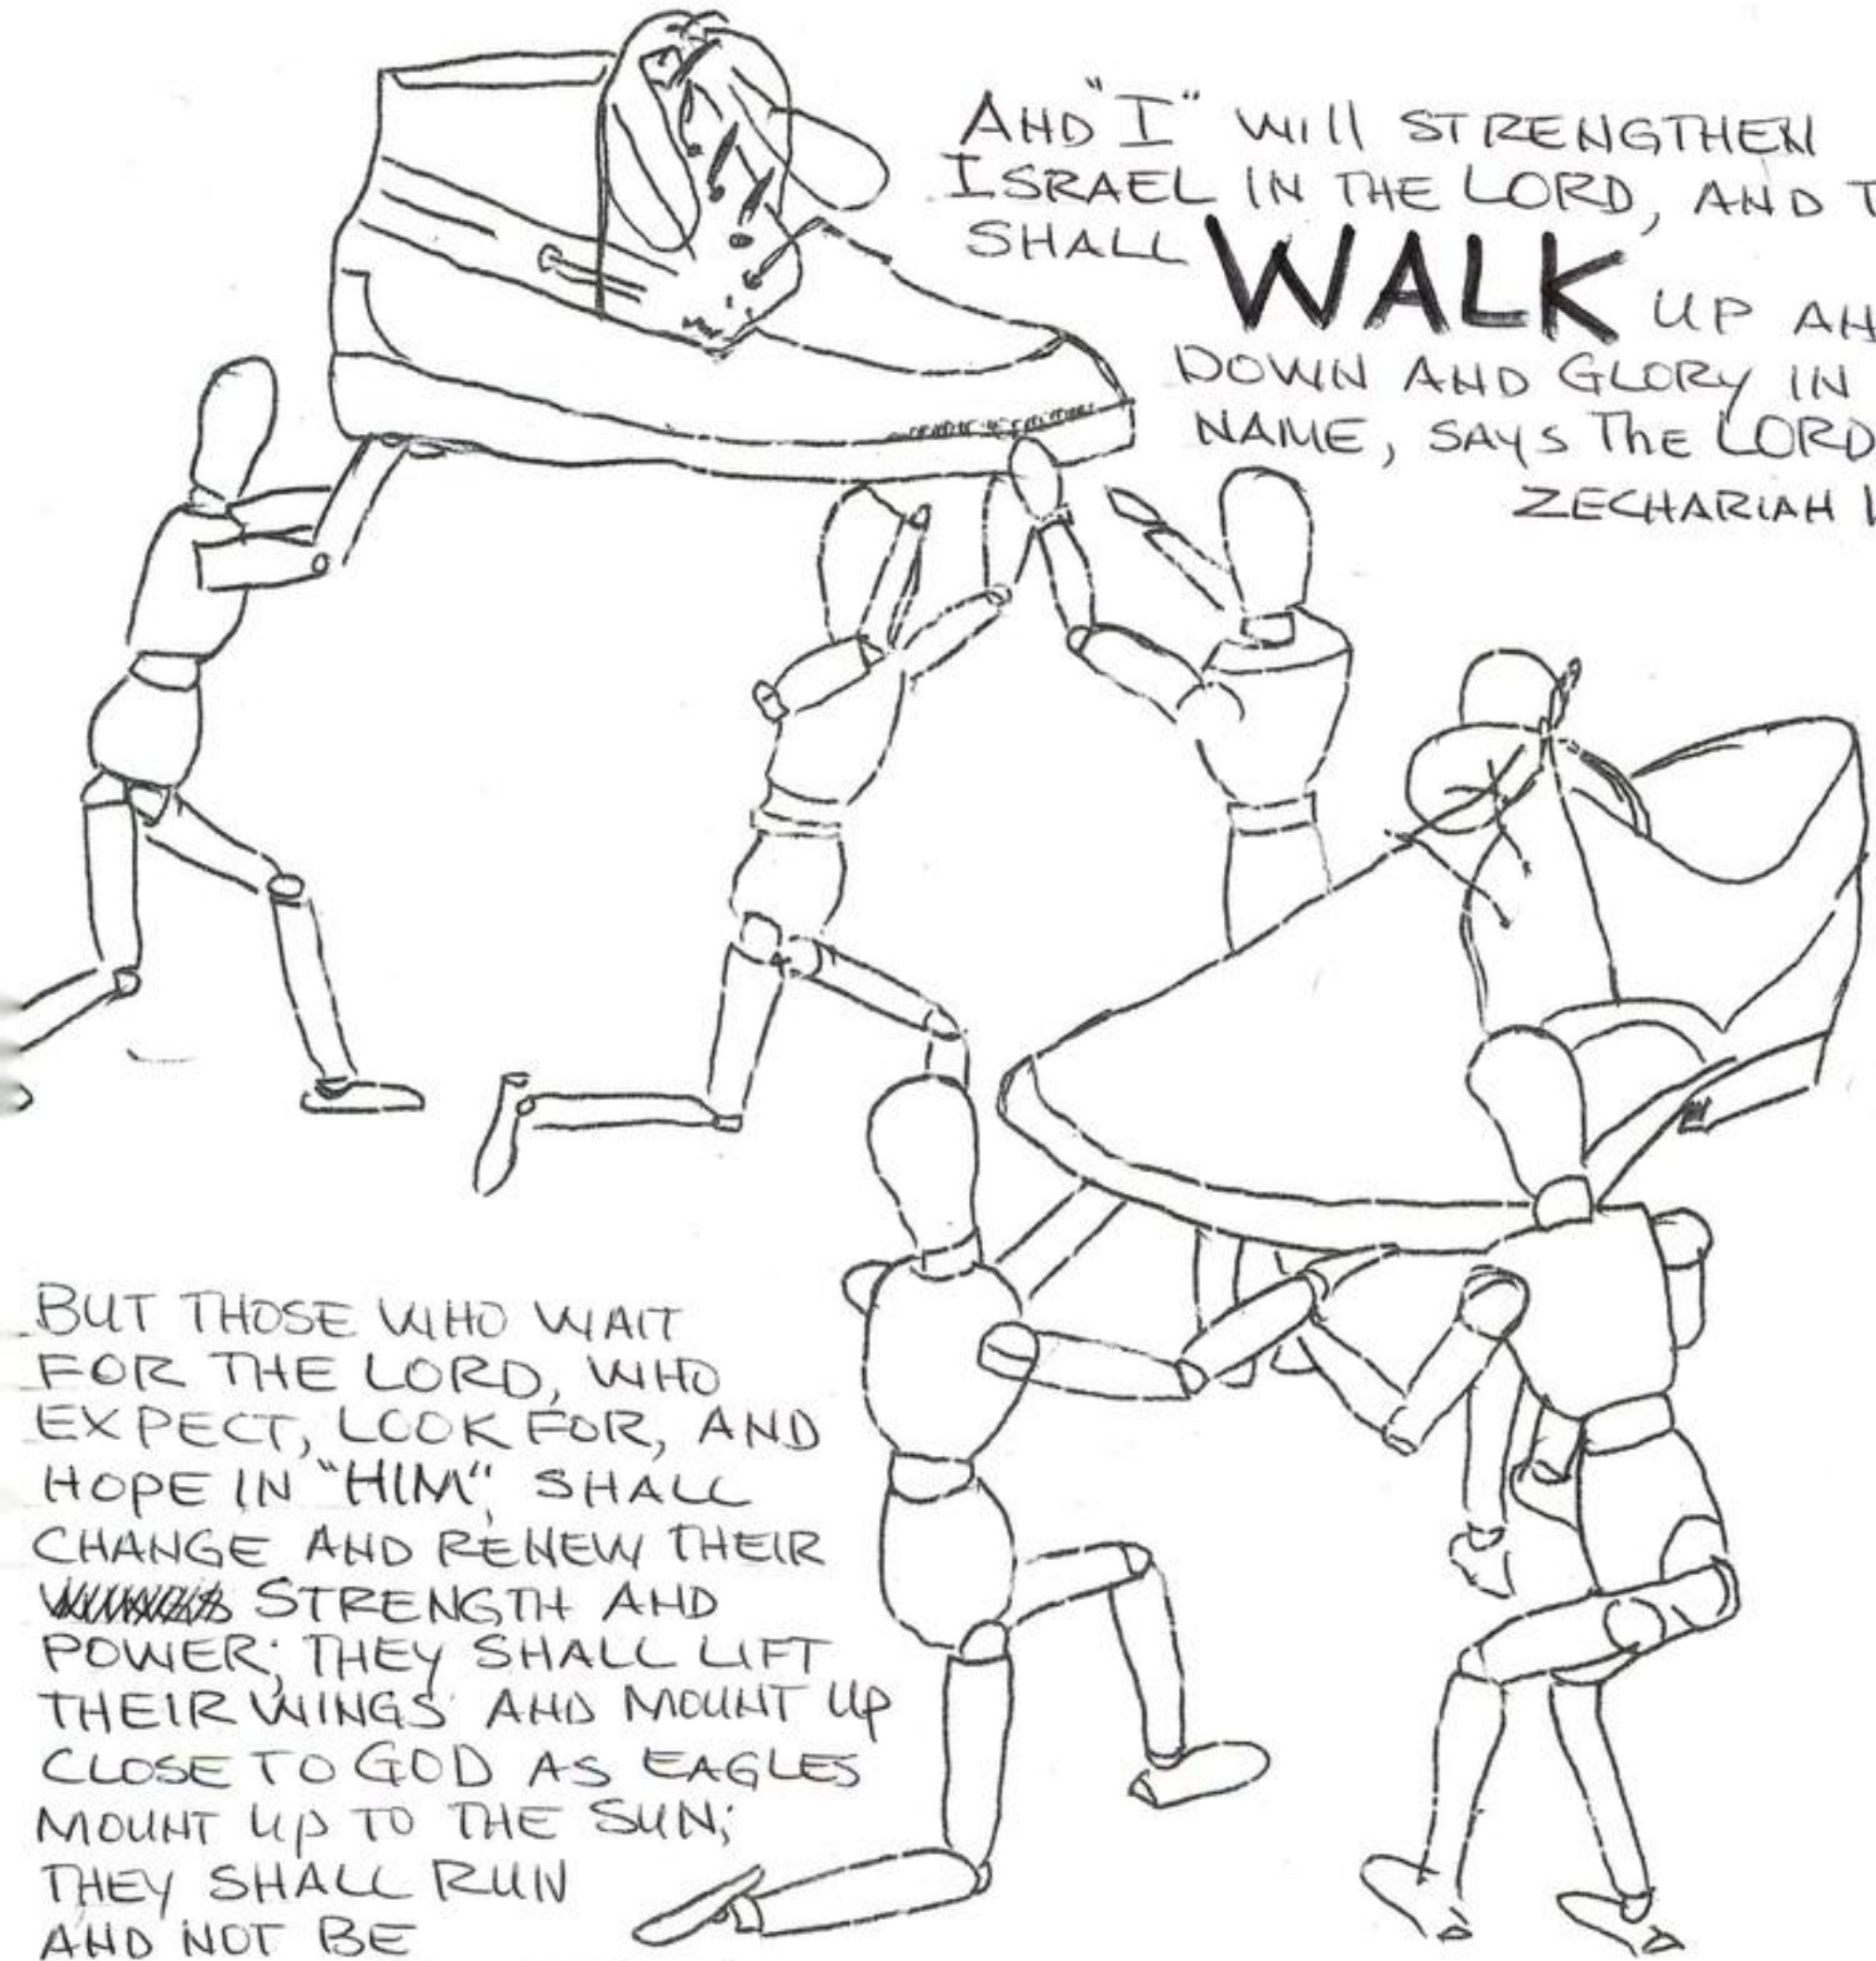 AND "I" WILL STRENGTHEN
ISRAEL IN THE LORD, AND T
SHALL WALK UP AN
DOWN AND GLORY IN
NAME, SAYS THE LORD
ZECHARIAH 1
BUT THOSE WHO WAIT
FOR THE LORD, WHO
EXPECT, LOOK FOR, AND
HOPE IN "HIM", SHALL
CHANGE AND RENEW THEIR
STRENGTH AND
POWER; THEY SHALL LIFT
THEIR WINGS AND MOUNT UP
CLOSE TO GOD AS EAGLES
MOUNT UP TO THE SUN;
THEY SHALL RUN
AND NOT BE